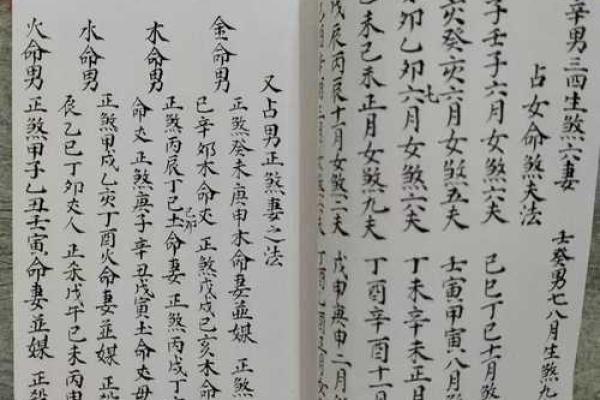 辛男三四生煞六妻 壬癸男七八月生煞九
占女命煞夫法
子壬子六月女煞六夫 己巳丁巳十月煞
亥癸亥六月女煞五夫 壬寅甲寅八月
卯乙卯六月女煞六夫 丁未辛未正月
七
未己未正月女煞九夫 丁酉辛酉十一
戊辰丙辰十一月女煞二夫 戊申庚申二月
又占男正煞妻之法
金命男 正煞癸未庚申木命妻並媒 正煞
巳辛卯木命丈 正煞戊戌己亥木命
木命男 正煞丙辰丁巳土命妻 正煞丙戌丁
乙卯
命丈正煞庚子辛丑戊寅土命丈母
水命男 正煞甲戌乙亥丁酉火命妻並媒 正
辰乙巳丁卯丈人 正杀戊午己未丙申
火命男 正煞甲子乙丑壬寅命妻並媒 正